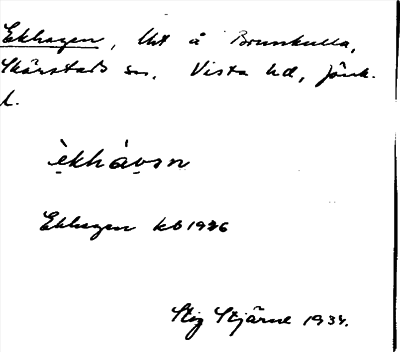 Ekhagen, lht å Brunkulla,
Skärstads sn, Vista hd, Jönk.
l.
èkhávən
Ekhagen kb 1926
Stig Stjärne 1934.